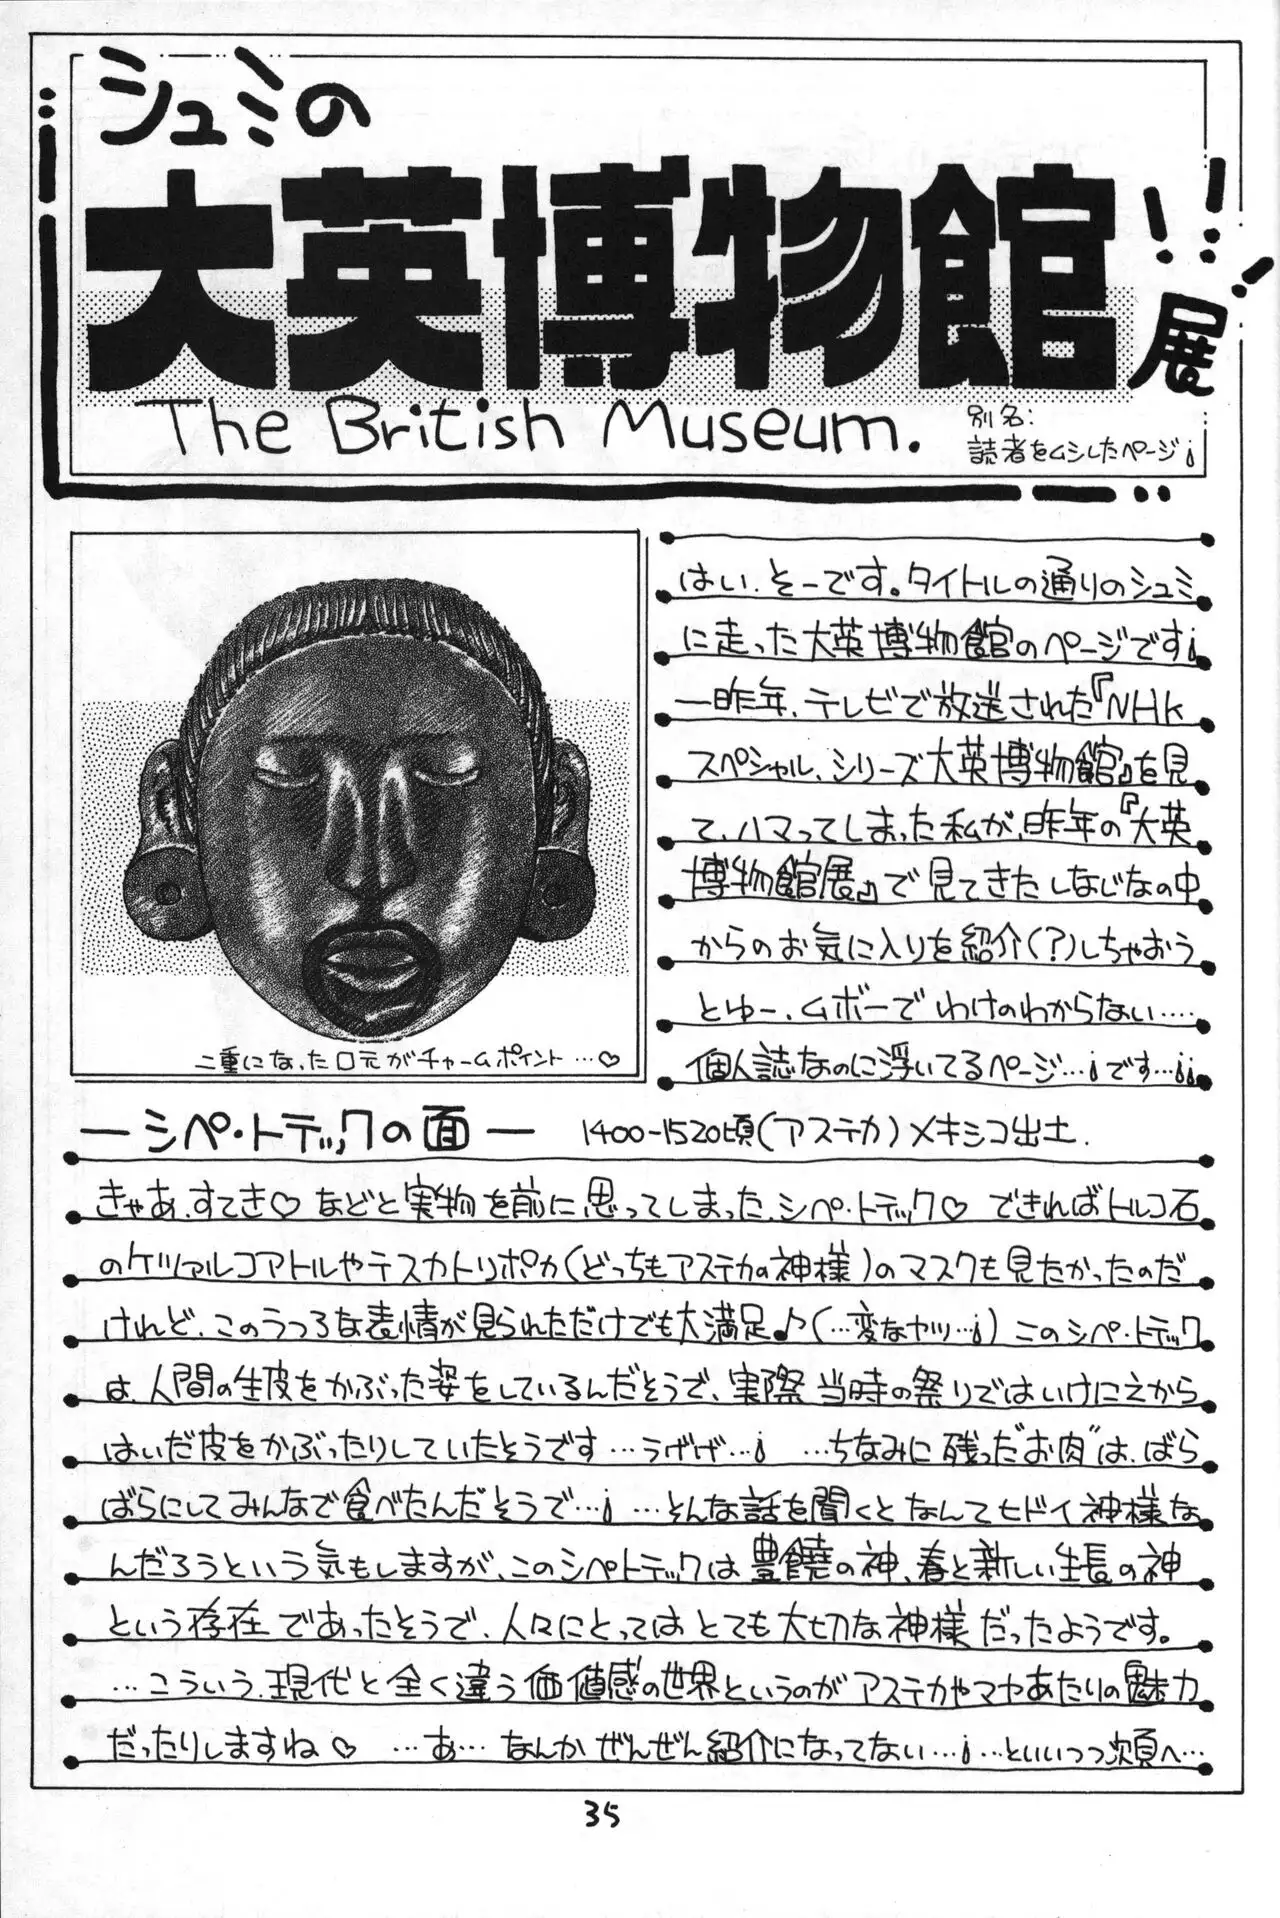 シュミの
大英博物館展
The British Museum.
別名:
読者をムシしたページ¡
はい、そーです。タイトルの通りのシュミ
に走った大英博物館のページです¡
一昨年、テレビで放送された『NHK
スペシャル、シリーズ大英博物館』を見
て、ハマってしまった私が、昨年の『大英
博物館展』で見てきたしなじなの中
からのお気に入りを紹介(?)しちゃおう
とゆー、ムボーでわけのわからない‥‥
個人誌なのに浮いてるページ…¡です…¡¡
二重になった口元がチャームポイント…♡
―シペ・トテックの面― 1400-1520頃(アステカ)メキシコ出土.
きゃあ、すてき♡などと実物を前に思ってしまった、シペ・トテック♡ できればトルコ石
のケツァルコアトルやテスカトリポカ(どっちもアステカの神様)のマスクも見たかったのだ
けれど、このうつろな表情が見られただけでも大満足♪(…変なヤツ…¡)このシペ・トテック
は、人間の生皮をかぶった姿をしているんだそうで、実際当時の祭りではいけにえから
はいだ皮をかぶったりしていたそうです…うげげ…¡ …ちなみに残った"お肉"は、ばら
ばらにしてみんなで食べたんだそうで…¡…そんな話を聞くとなんてヒドイ神様な
んだろうという気もしますが、このシペトテックは豊饒の神、春と新しい生長の神
という存在であったそうで、人々にとってはとても大切な神様だったようです。
…こういう、現代と全く違う価値感の世界というのがアステカやマヤあたりの魅力
だったりしますね♡ …あ…なんかぜんぜん紹介になってない…¡…といいつつ次頁へ…
35